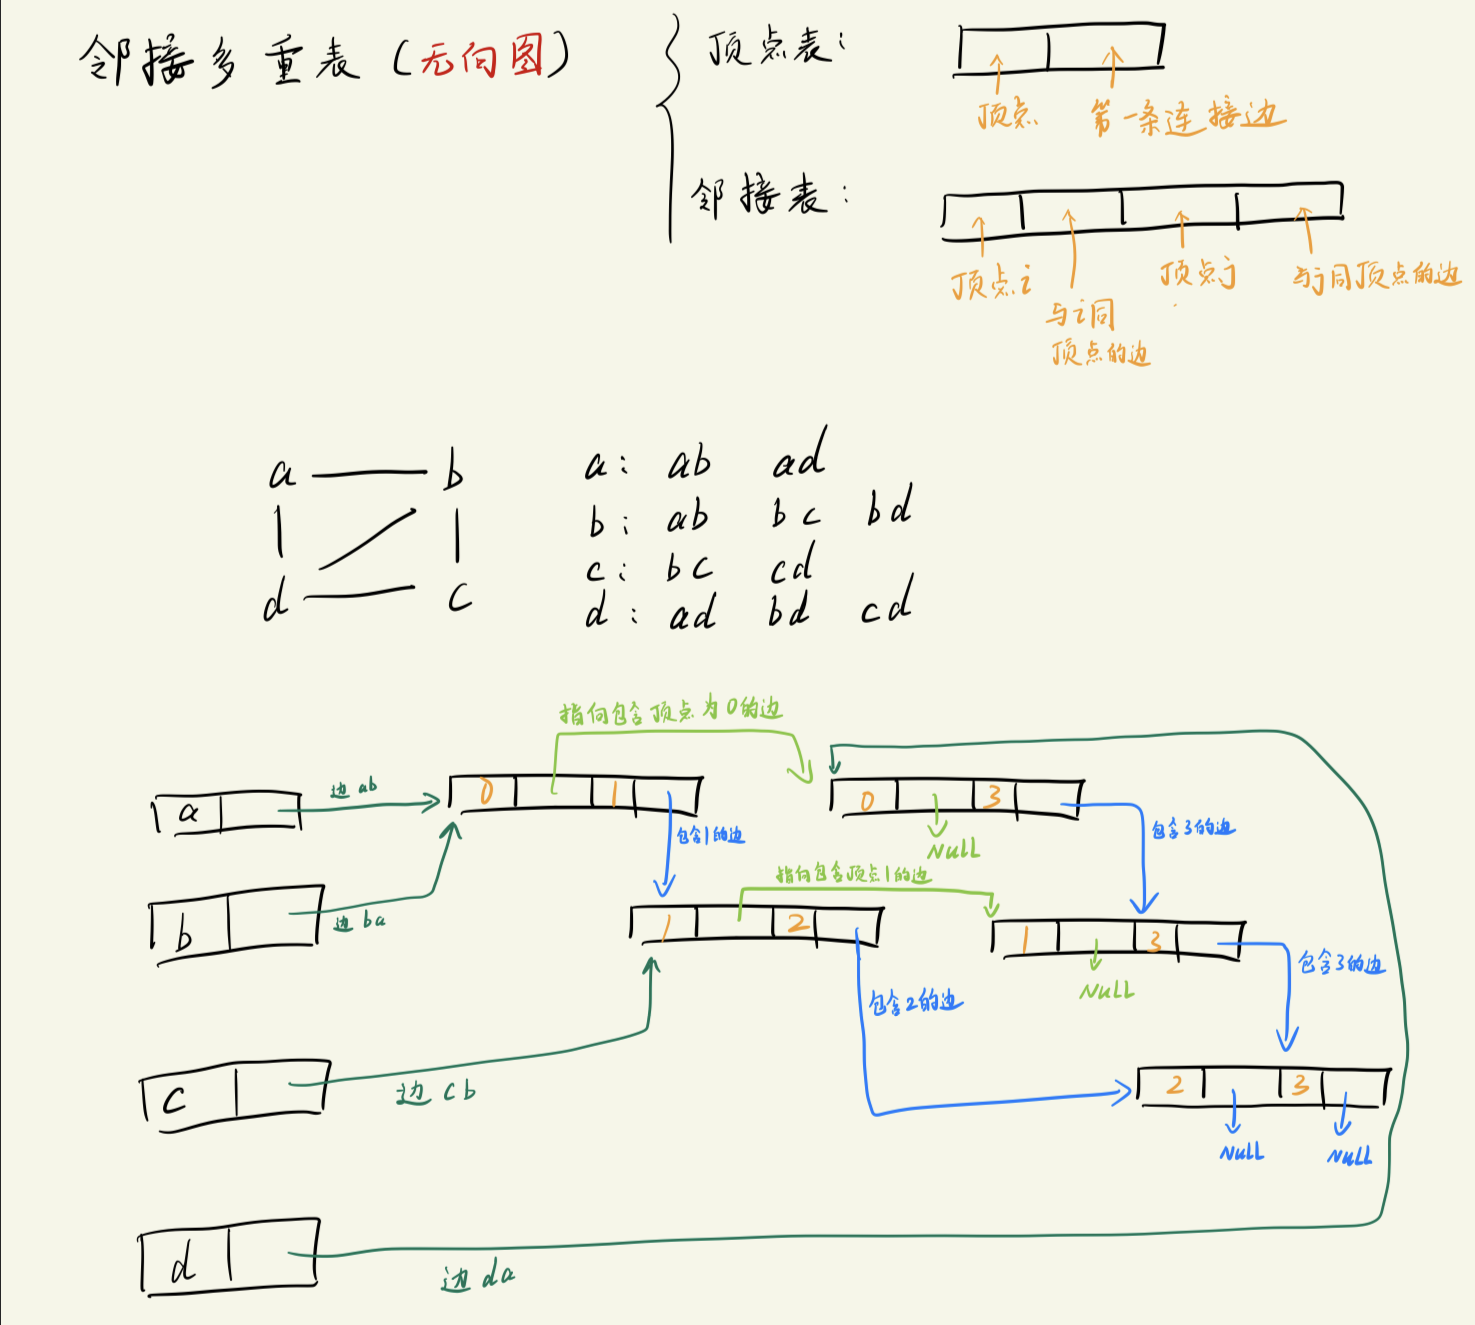 邻接多重表(无向图)
顶点表:
顶点 第一条连接边
邻接表:
顶点i 与i同顶点的边 顶点j 与j同顶点的边
a b
d c
a: ab ad
b: ab bc bd
c: bc cd
d: ad bd cd
指向包含顶点为0的边
a 边ab 0 1 0 3
包含1的边 Null 包含3的边
指向包含顶点1的边
b 边ba 1 2 1 3
包含2的边 Null 包含3的边
c 边cb 2 3
Null Null
d 边da